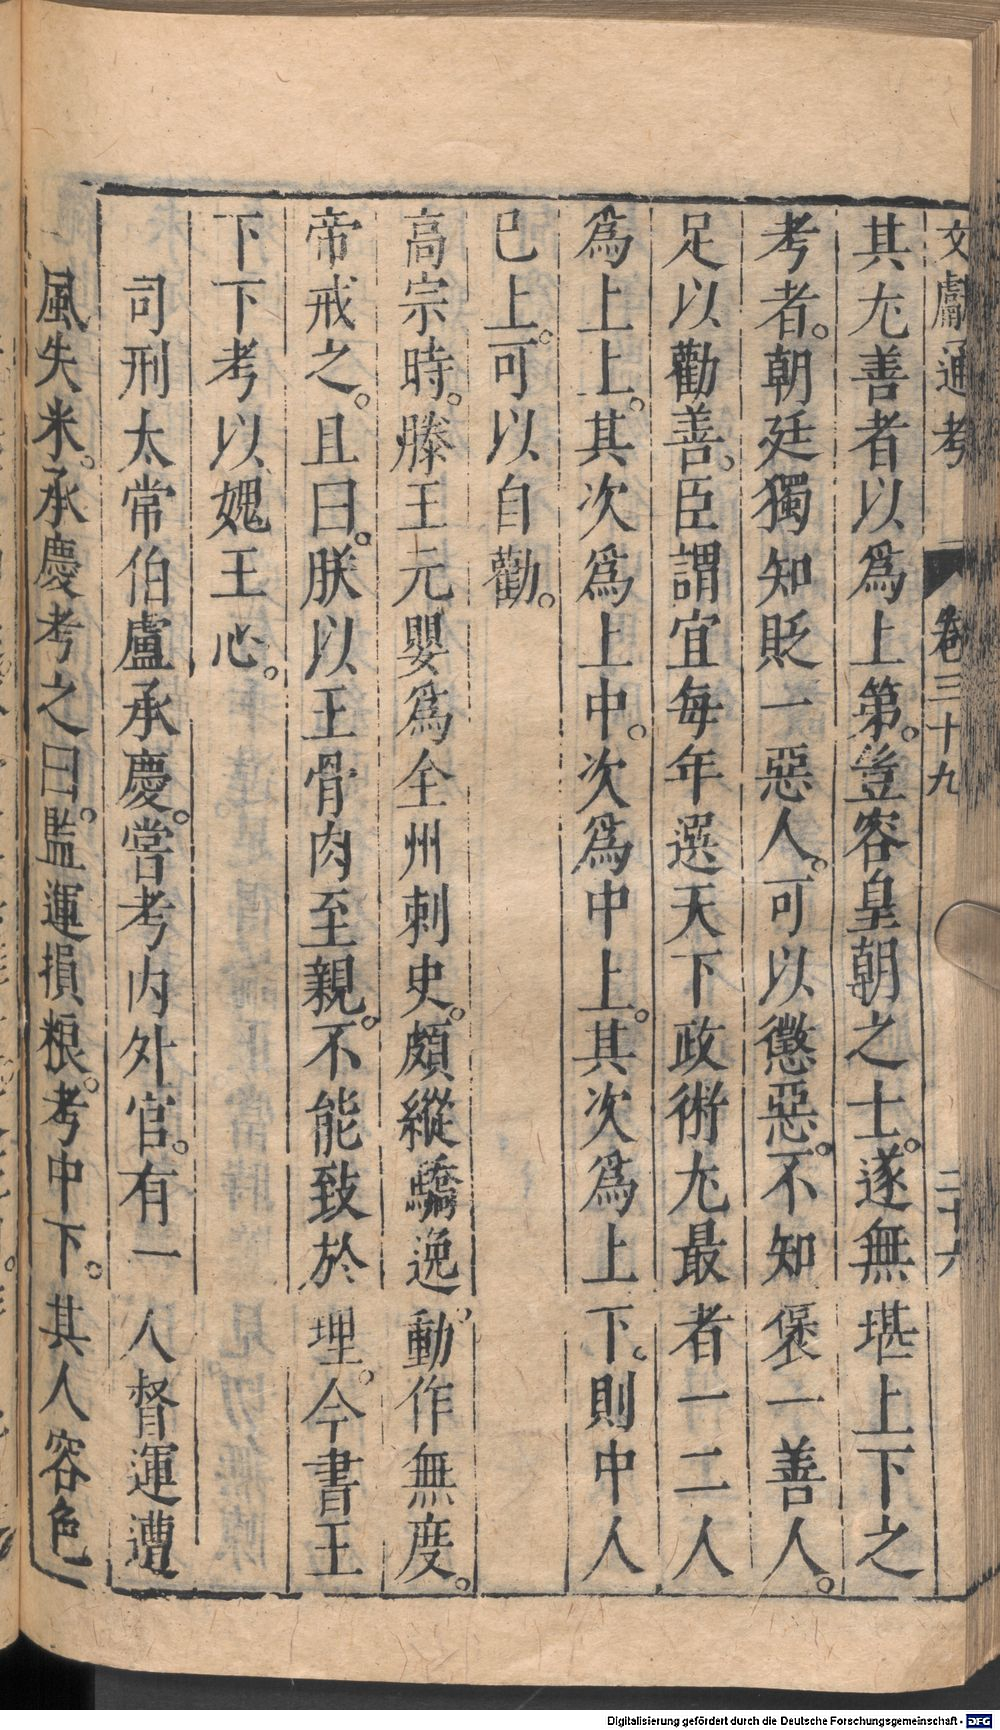 文獻通考 卷三十九 二十六
其尢善者以爲上第。豈容皇朝之士。遂無堪上下之
考者。朝廷獨知貶一惡人。可以懲惡。不知褒一善人。
足以勸善。臣謂宜每年選天下政術尢最者一二人
爲上上。其次爲上中。次爲中上。其次爲上下。則中人
已上。可以自勸。
高宗時。滕王元嬰爲全州刺史。頗縱驕逸。動作無度。
帝戒之。且曰。朕以王骨肉至親。不能致於理。今書王
下下考以媿王心。
司刑太常伯盧承慶。嘗考內外官。有一人督運遭
風失米。承慶考之曰。監運損粮。考中下。其人容色
Digitalisierung gefördert durch die Deutsche Forschungsgemeinschaft - DFG